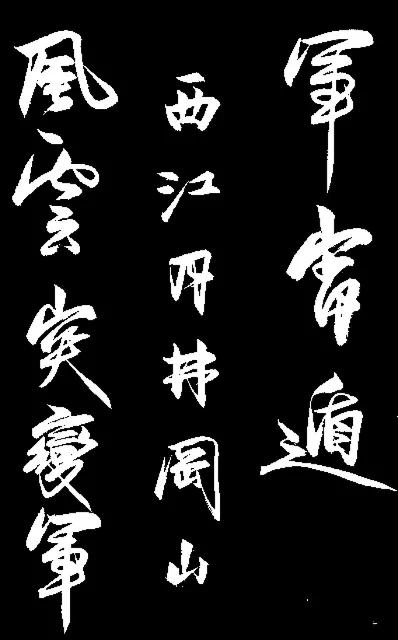 軍宵遁
西江月井岡山
風雲突變軍